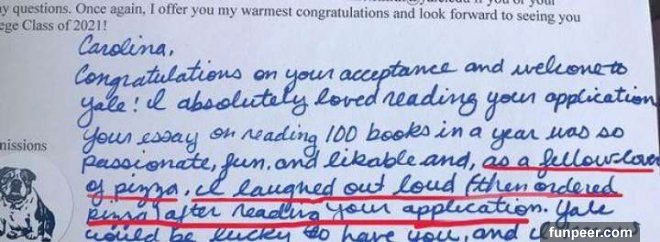 y questions. Once again, I offer you my warmest congratulations and look forward to seeing you
ege Class of 2021!
Carolina,
Congratulations on your acceptance and welcome to
Yale! I absolutely loved reading your application
Your essay on reading 100 books in a year was so
missions
passionate, fun, and likable and, as a fellow lover
of pizza, I laughed out loud (then ordered
pizza) after reading your application. Yale
would be lucky to have you, and
funpeer.com